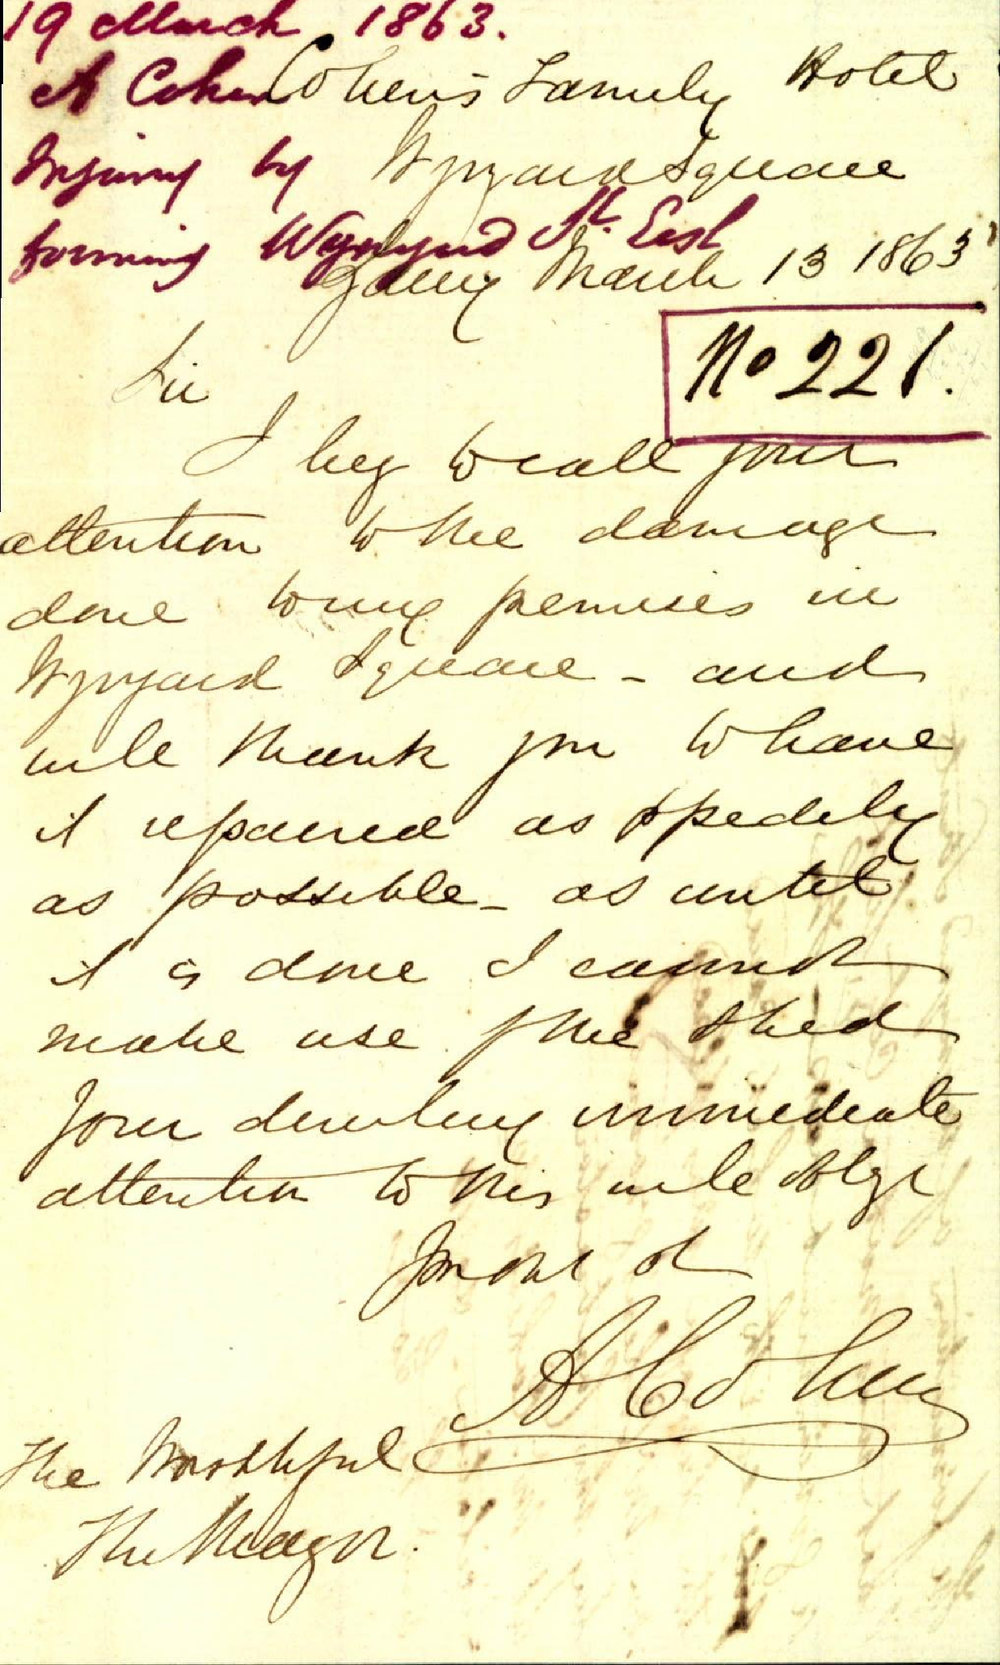 19 March 1863.
A Cohen
Injury by
forming Wynyard St. East
Cohen's Family Hotel
Wynyard Square
Sydney March 13 1863
No 221.
Sir
I beg to call your
attention to the damage
done to my premises in
Wynyard Square - and
will thank you to have
it repaired as spedely
as possible - as until
it is done I cannot
make use of the shed
Your
immediate
attention to this will oblge
Your obt st
A Cohen
The Worshipful
The Mayor.